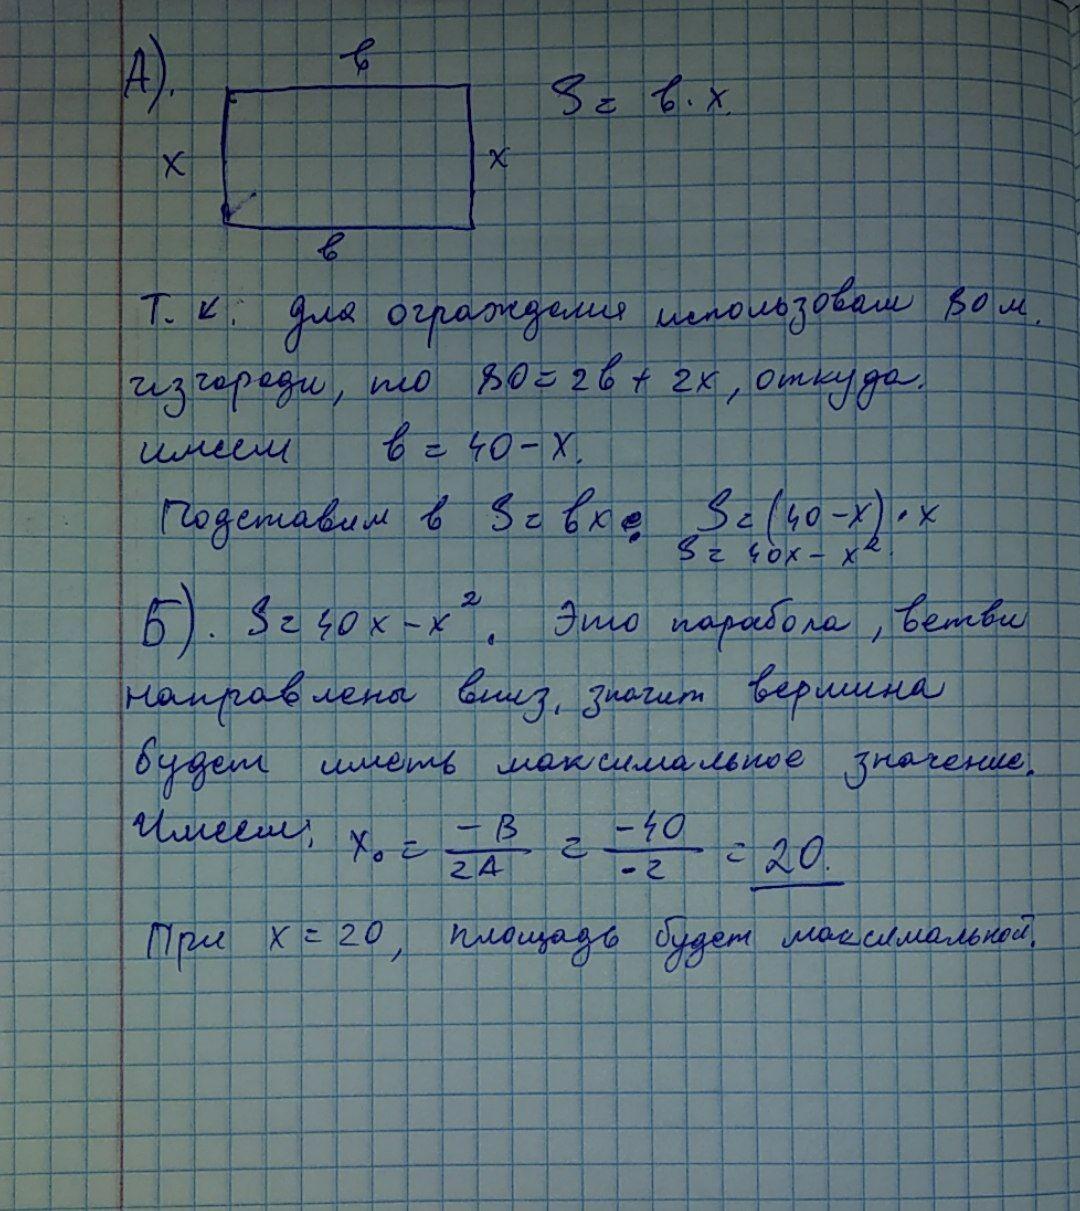 А).
в
S = в · x.
x
x
в
Т. к. для ограждения использовали 80 м.
изгороди, то 80 = 2в + 2x, откуда.
имеем в = 40 - x.
Подставим в S = вx: S = (40 - x) · x
S = 40x - x².
Б). S = 40x - x². Это парабола, ветви
направлены вниз, значит вершина
будет иметь максимальное значение.
Имеем: x₀ = -B/2A = -40/-2 = 20.
При x = 20, площадь будет максимальной.